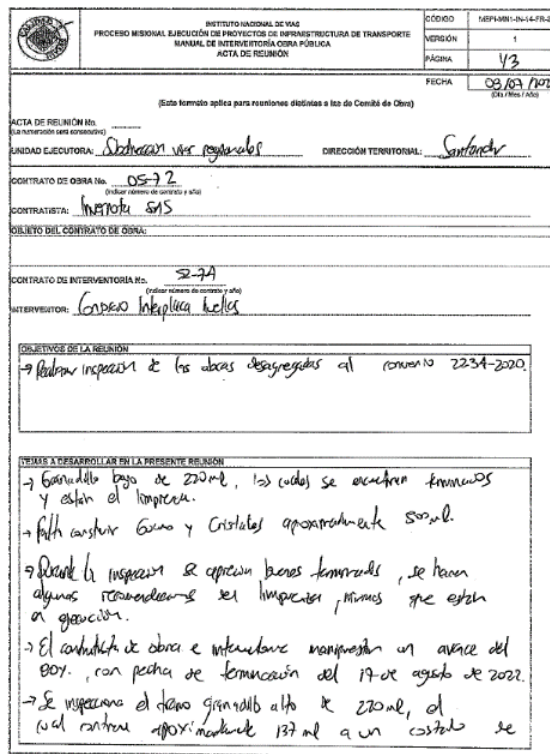 INSTITUTO NACIONAL DE VIAS
PROCESO MISIONAL EJECUCIÓN DE PROYECTOS DE INFRAESTRUCTURA DE TRANSPORTE
MANUAL DE INTERVENTORÍA OBRA PÚBLICA
ACTA DE REUNIÓN
CÓDIGO MEPI-MN1-IN-14-FR-2
VERSIÓN 1
PÁGINA 1/3
FECHA 03/07/202
(Día / Mes / Año)
(Este formato aplica para reuniones distintas a las de Comité de Obra)
ACTA DE REUNIÓN No.
(La numeración será consecutiva)
UNIDAD EJECUTORA: Subdireccion vias regionales DIRECCIÓN TERRITORIAL: Santander
CONTRATO DE OBRA No. OS-72
(Indicar número de contrato y año)
CONTRATISTA: SAS
OBJETO DEL CONTRATO DE OBRA:
CONTRATO DE INTERVENTORÍA No. SI-7A
(Indicar número de contrato y año)
INTERVENTOR: Consorcio Interplaca huellas
OBJETIVOS DE LA REUNIÓN
→ Realizar inspección de las obras desagregadas al convenio 2234-2020.
TEMAS A DESARROLLAR EN LA PRESENTE REUNIÓN
→ Granadillo bajo de 220 ml, los cuales se encuentran terminados
y están el limpieza.
→ Falta construir y Cristales aproximadamente 500 ml.
→ Durante la inspección se aprecian buenos terminados, se hacen
algunas recomendaciones limpieza, mismas que están
en ejecución.
→ El contratista de obra e interventoria manifiestan un avance del
80%, con fecha de terminación del 19 de agosto de 2022.
→ Se inspecciona el tramo granadillo alto de 220 ml, el
cual contiene aproximadamente 137 ml a un costado de